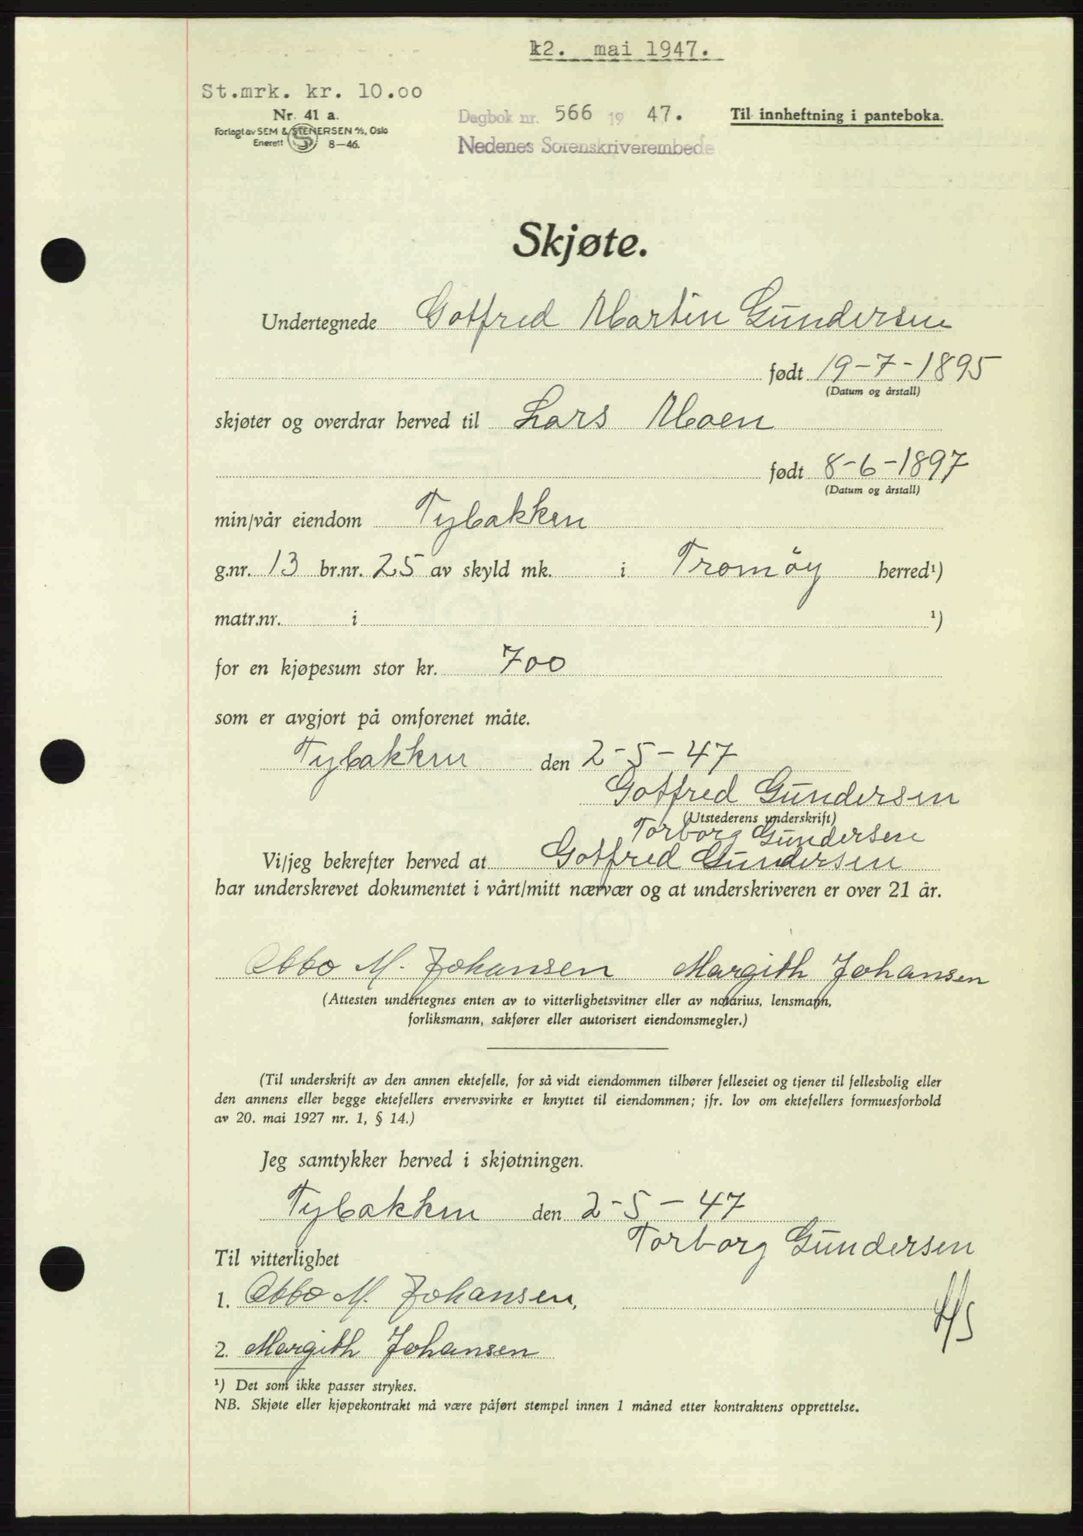 12. mai 1947.
St.mrk. kr. 10.00
Nr. 41 a.
Forlagt av SEM & STENERSEN A/S, Oslo
Enerett 8—46.
Dagbok nr. 566 1947.
Nedenes Sorenskriverembede
Til innheftning i panteboka.
Skjøte.
Undertegnede Gotfred Martin Gundersen
født 19-7-1895
(Datum og årstall)
skjøter og overdrar herved til Lars Moen
født 8-6-1897
(Datum og årstall)
min/vår eiendom Tybakken
g.nr. 13 br.nr. 25 av skyld mk. i Tromöy herred¹)
matr.nr. i ¹)
for en kjøpesum stor kr. 700
som er avgjort på omforenet måte.
Tybakken den 2-5-47
Gotfred Gundersen
(Utstederens underskrift)
Torborg Gundersen
Vi/jeg bekrefter herved at Gotfred Gundersen
har underskrevet dokumentet i vårt/mitt nærvær og at underskriveren er over 21 år.
Otto M. Johansen Margith Johansen
(Attesten undertegnes enten av to vitterlighetsvitner eller av notarius, lensmann,
forliksmann, sakfører eller autorisert eiendomsmegler.)
(Til underskrift av den annen ektefelle, for så vidt eiendommen tilhører felleseiet og tjener til fellesbolig eller
den annens eller begge ektefellers ervervsvirke er knyttet til eiendommen; jfr. lov om ektefellers formuesforhold
av 20. mai 1927 nr. 1, § 14.)
Jeg samtykker herved i skjøtningen.
Tybakken den 2-5-47
Torborg Gundersen
Til vitterlighet
1. Otto M. Johansen,
2. Margith Johansen
¹) Det som ikke passer strykes.
NB. Skjøte eller kjøpekontrakt må være påført stempel innen 1 måned etter kontraktens opprettelse.